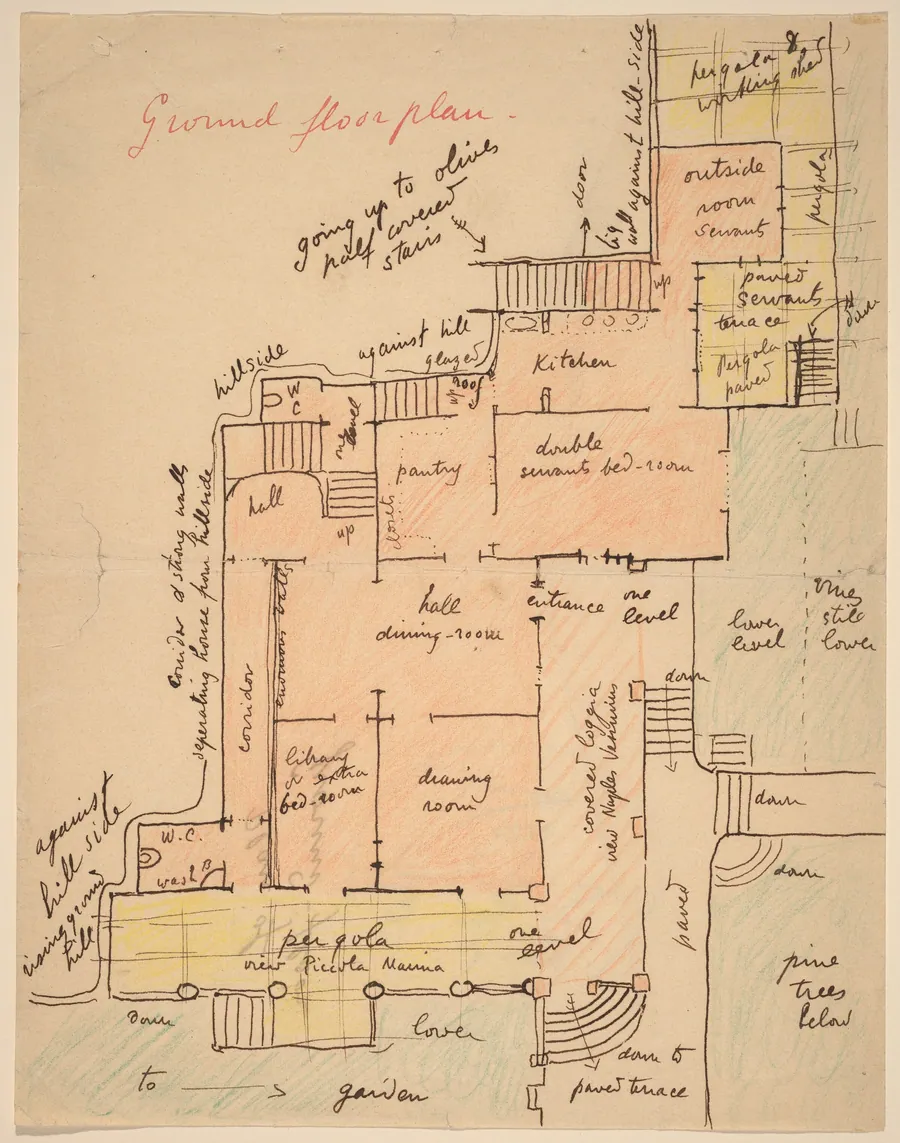 Ground floor plan.
pergola &
working shed
big
wall against hill-side
door
going up to olives
half covered
stairs
outside
room
servants
pergola
up
paved
servants
terrace
down
Pergola
paved
Kitchen
against hill
glazed
roof
up
hillside
W
C
one
level
double
servants bed-room
pantry
closets
hall
up
corridor & strong walls
seperating house from hillside
hall
dining-room
entrance
one
level
lower
level
vines
still
lower
corridor
enormous walls
down
covered loggia
view Naples Vesuvius
library
or extra
bed-room
drawing
room
down
against
hill side
rising ground
hill
W.C.
wash B
down
paved
pergola
view Piccola Marina
one
level
pine
trees
below
down
lower
down to
paved terrace
to
garden